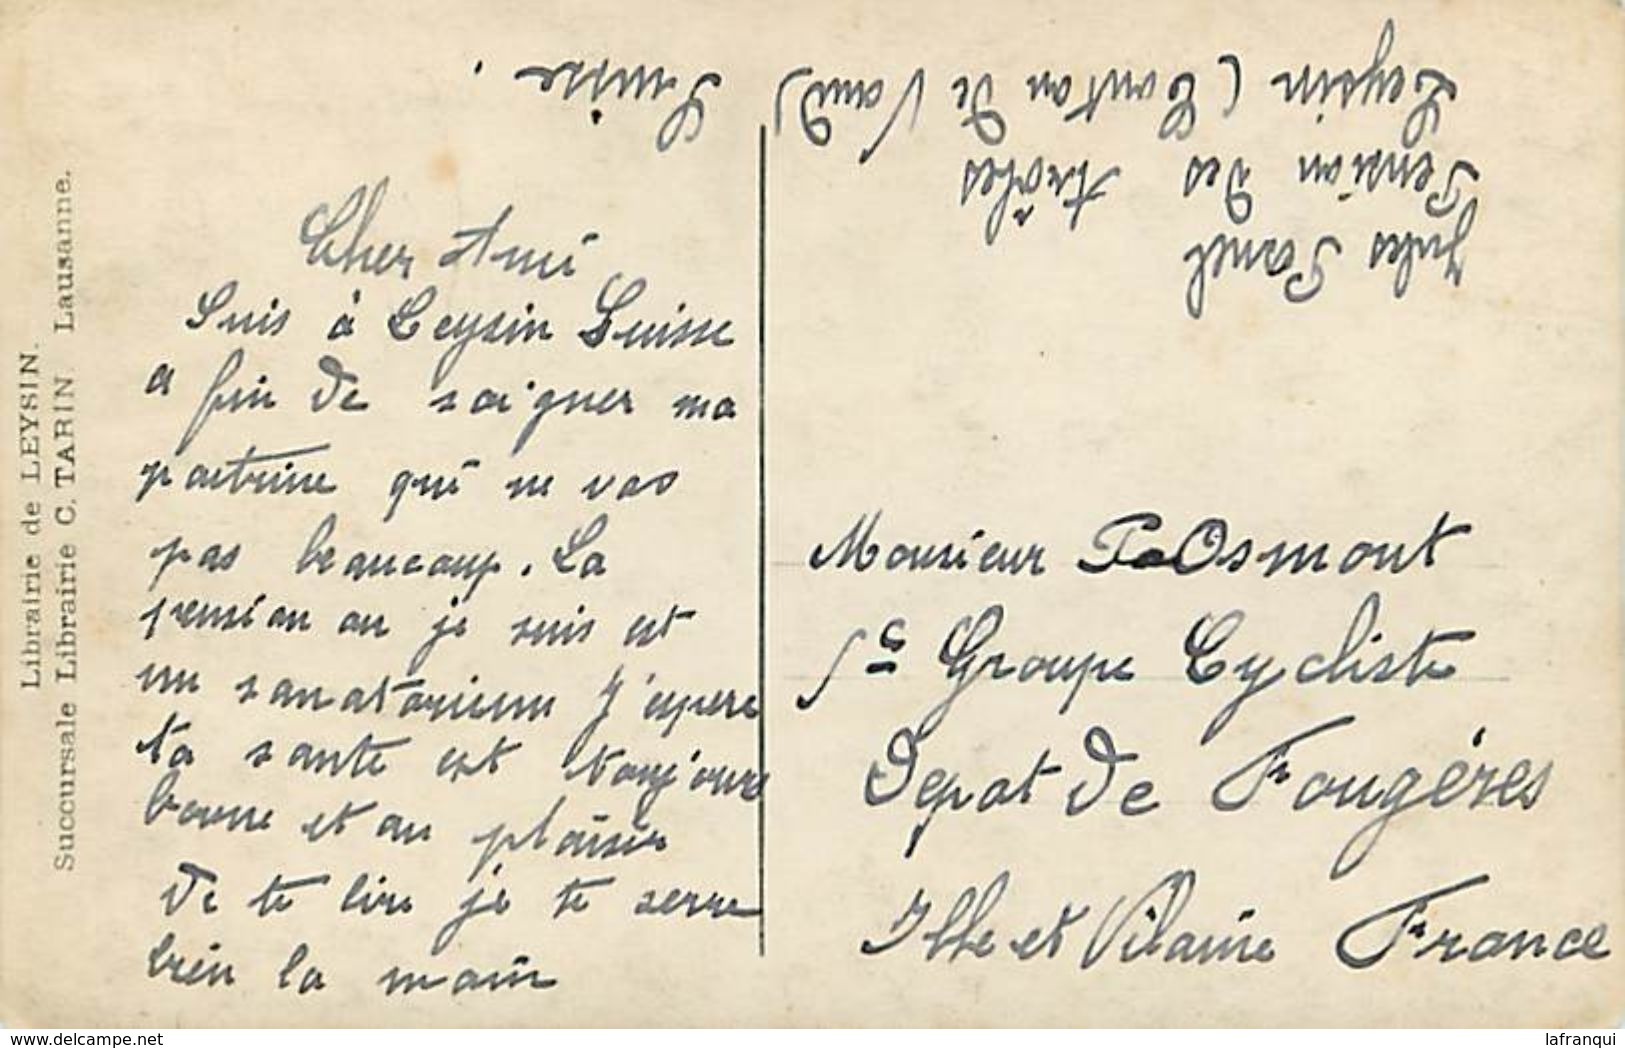 Librairie de LEYSIN.
Succursale Librairie C. TARIN Lausanne.
Cher Ami
Suis à Leysin Suisse
a fin de soigner ma
poitrine qui ne vas
pas beaucoup. La
pension ou je suis est
un sanatorium J'espere
ta sante est toujours
bonne et au plaisir
de te lire je te serre
bien la main
Jules
Pension des Arolles
Leysin (Canton de Vaud)
Suisse.
Monsieur Osmont
5e Groupe Cycliste
Depot de Fougéres
Ille et Vilaine France
delcampe.net
lafranqui